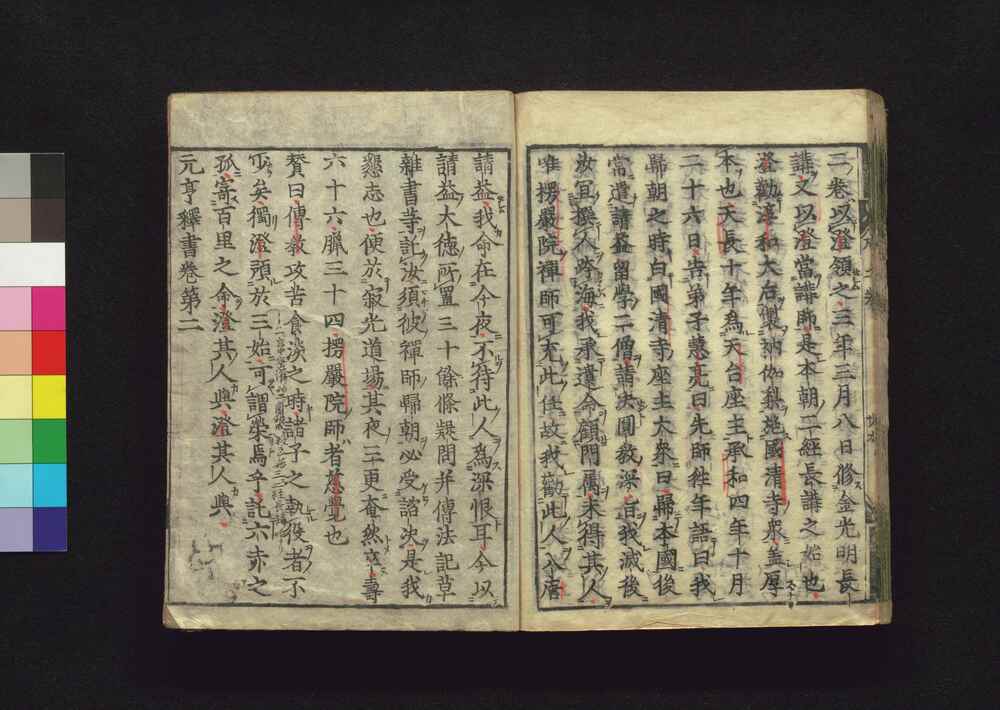 二卷以澄領之三年三月八日修金光明長
講又以澄當講師是本朝二經長講之始也
澄勤淳和太后製衲伽梨施國清寺衆盖厚
本也天長十年為天台座主承和四年十月
二十六日告弟子慧亮曰先師徃年語曰我
歸朝之時白國清寺座主大衆曰歸本國後
當遣請益留學二僧請决圓教深旨我滅後
汝宜撰人跨海我承遺命顧門僕未得其人
唯楞嚴院禪師可充此任故我勸此人入唐
請益我命在今夜不待此人為深恨耳今以
請益大德所置三十餘條疑問并傳法記草
雜書等託汝須彼禪師歸朝必受諮决是我
懇志也便於寂光道場其夜三更奄然寂壽
六十六臘三十四楞嚴院師者慈覺也
賛曰傳教攻苦食淡之時諸子之執役者不
匹矣獨澄預於三始可謂榮焉乎託六赤之
孤寄百里之命澄其人與澄其人與
元亨釋書卷第二